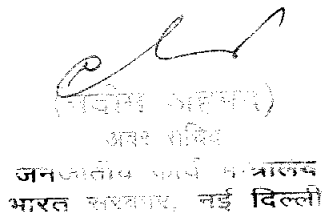 (नदीम अहमद)
अवर सचिव
जनजातीय कार्य मंत्रालय
भारत सरकार, नई दिल्ली